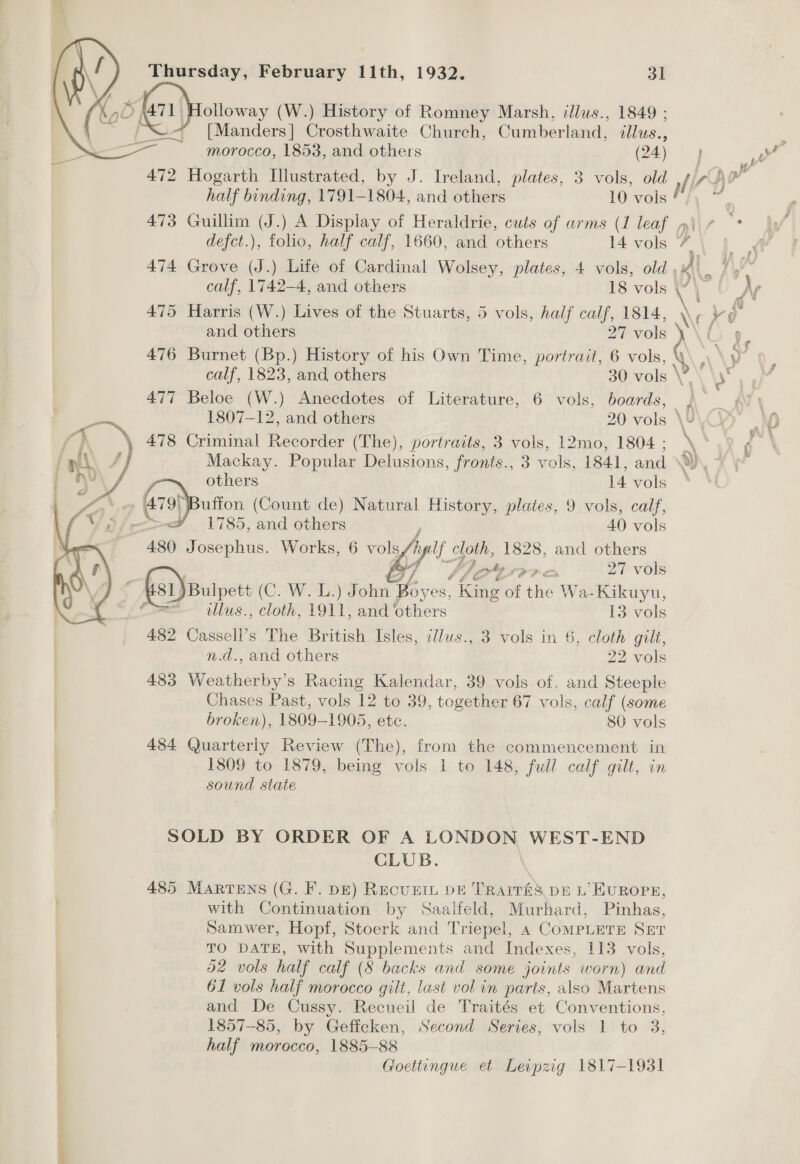 Thursday, February 11th, 1932. 31
471 Holloway (W.) History of Romney Marsh, illus., 1849 ;
[Manders] Crosthwaite Church, Cumberland, illus.,
morocco, 1853, and others (24)
472 Hogarth Illustrated, by J. Ireland, plates, 3 vols, old
half binding, 1791–1804, and others 10 vols
473 Guillim (J.) A Display of Heraldrie, cuts of arms (1 leaf
defct.), folio, half calf, 1660, and others 14 vols
474 Grove (J.) Life of Cardinal Wolsey, plates, 4 vols, old
calf, 1742–4, and others 18 vols
475 Harris (W.) Lives of the Stuarts, 5 vols, half calf, 1814,
and others 27 vols
476 Burnet (Bp.) History of his Own Time, portrait, 6 vols,
calf, 1823, and others 30 vols
477 Beloe (W.) Anecdotes of Literature, 6 vols, boards,
1807–12, and others 20 vols
478 Criminal Recorder (The), portraits, 3 vols, 12mo, 1804 ;
Mackay. Popular Delusions, fronts., 3 vols, 1841, and
others 14 vols
479 Buffon (Count de) Natural History, plates, 9 vols, calf,
1785, and others 40 vols
480 Josephus. Works, 6 vols, half cloth, 1828, and others
27 vols
481 Bulpett (C. W. L.) John Boyes, King of the Wa-Kikuyu,
illus., cloth, 1911, and others 13 vols
482 Cassell's The British Isles, illus., 3 vols in 6, cloth gilt,
n.d., and others 22 vols
483 Weatherby's Racing Kalendar, 39 vols of. and Steeple
Chases Past, vols 12 to 39, together 67 vols, calf (some
broken), 1809–1905, etc. 80 vols
484 Quarterly Review (The), from the commencement in
1809 to 1879, being vols 1 to 148, full calf gilt, in
sound state
SOLD BY ORDER OF A LONDON WEST-END
CLUB.
485 MARTENS (G. F. DE) RECUEIL DE TRAITÉS DE L'EUROPE,
with Continuation by Saalfeld, Murhard, Pinhas,
Samwer, Hopf, Stoerk and Triepel, A COMPLETE SET
TO DATE, with Supplements and Indexes, 113 vols,
52 vols half calf (8 backs and some joints worn) and
61 vols half morocco gilt, last vol in parts, also Martens
and De Cussy. Recueil de Traités et Conventions,
1857–85, by Geffcken, Second Series, vols 1 to 3,
half morocco, 1885–88
Goettingue et Leipzig 1817–1931